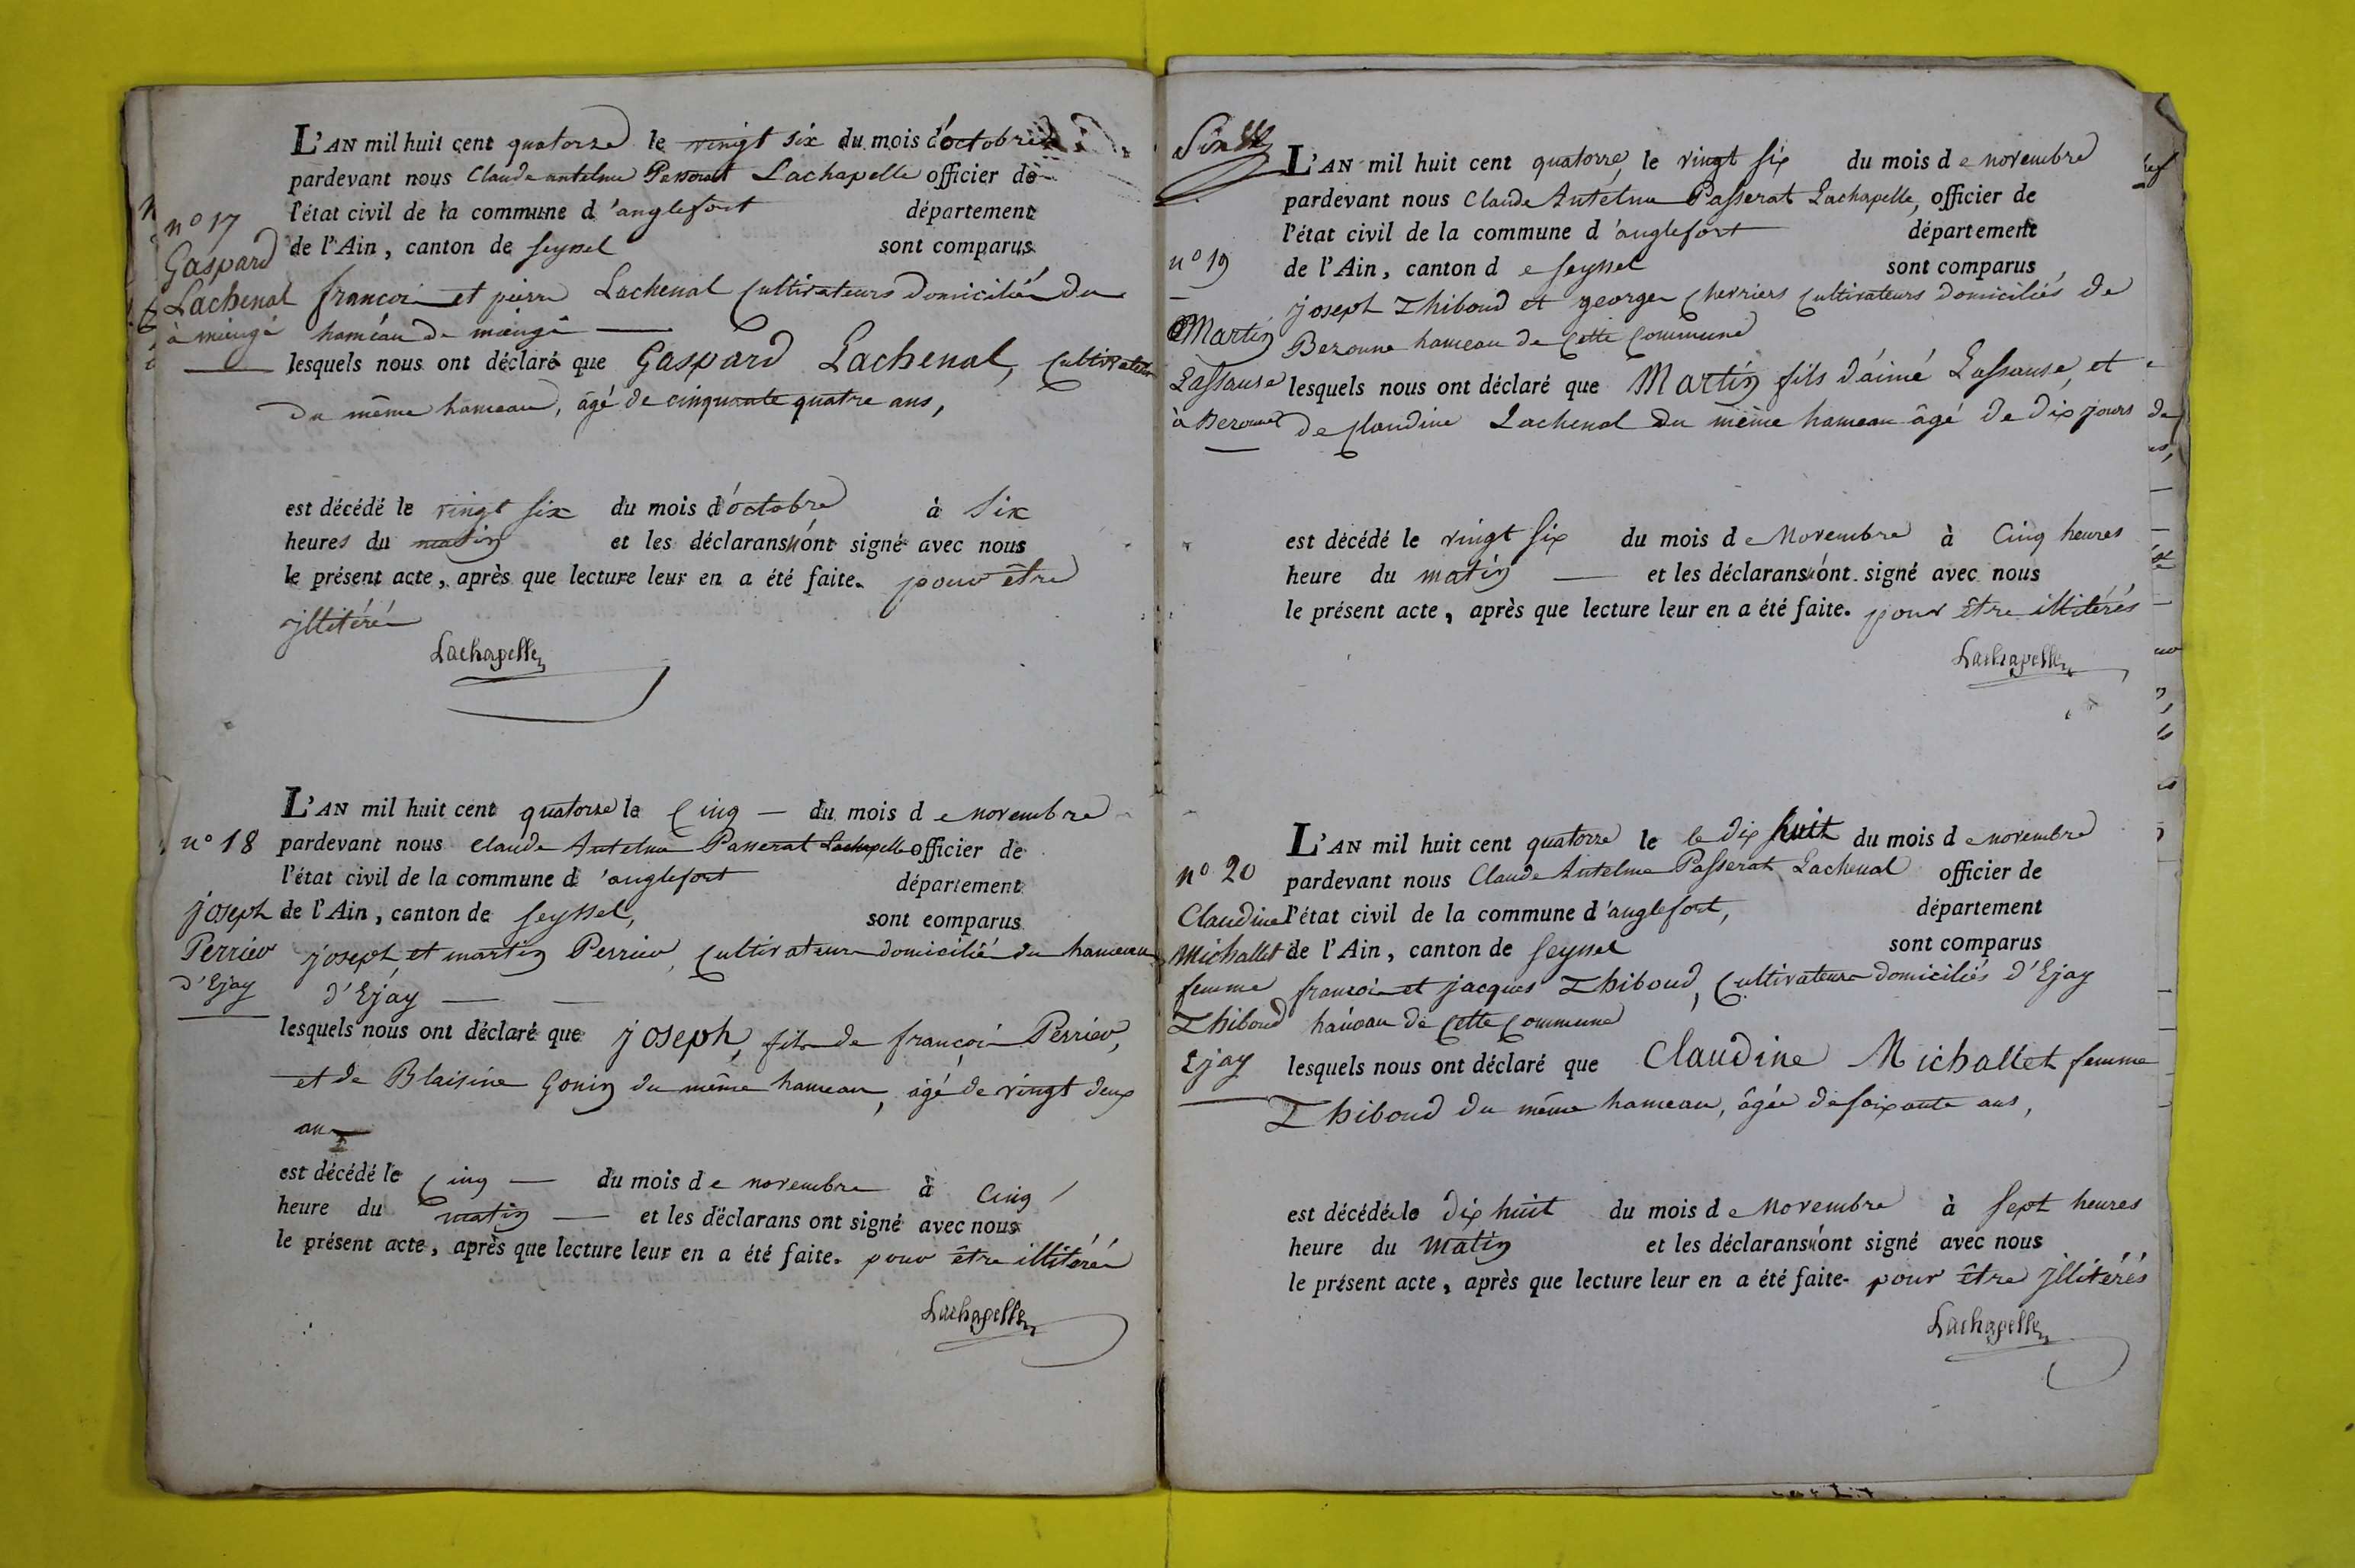 L'AN mil huit cent quatorze le vingt six du mois d'octobre
pardevant nous Claude antelme Passerat Lachapelle officier de
l'état civil de la commune d'anglefort département
de l'Ain, canton de seyssel sont comparus
n° 17
Gaspard
Lachenal
à miengé
françois et pierre Lachenal Cultivateurs domiciliés du
hameau de miengé
lesquels nous ont déclaré que Gaspard Lachenal, Cultivateur
du même hameau, âgé de cinquante quatre ans,
est décédé le vingt six du mois d'octobre à six
heures du matin et les déclarans n'ont signé avec nous
le présent acte, après que lecture leur en a été faite. pour être
illitérés
Lachapelle
L'AN mil huit cent quatorze le Cinq du mois de novembre
n° 18
pardevant nous claude Antelme Passerat Lachapelle officier de
l'état civil de la commune d'anglefort département
de l'Ain, canton de seyssel, sont comparus
joseph
Perrier
d'Ejay
joseph, et martin Perrier, Cultivateurs domiciliés du hameau
d'Ejay
lesquels nous ont déclaré que joseph, fils de françois Perrier,
et de Blaisine Gonin du même hameau, âgé de vingt deux
ans
est décédé le Cinq du mois de novembre à Cinq
heure du matin et les déclarans ont signé avec nous
le présent acte, après que lecture leur en a été faite. pour être illitérés
Lachapelle
L'AN mil huit cent quatorze, le vingt six du mois de novembre
pardevant nous Claude Antelme Passerat Lachapelle, officier de
l'état civil de la commune d'anglefort département
n° 19
de l'Ain, canton de seyssel sont comparus
Martin
Lassause
à Bezonne
joseph Thiboud et george Cherriers Cultivateurs domiciliés de
Bezonne hameau de Cette Commune
lesquels nous ont déclaré que Martin fils d'aimé Lassause, et
de Claudine Lachenal du même hameau âgé de dix jours
est décédé le vingt six du mois de Novembre à Cinq heures
heure du matin et les déclarans n'ont signé avec nous
le présent acte, après que lecture leur en a été faite. pour être illitérés
Lachapelle
L'AN mil huit cent quatorze le le dix huit du mois de novembre
n° 20
pardevant nous Claude Antelme Passerat Lachenal officier de
l'état civil de la commune d'anglefort, département
de l'Ain, canton de seyssel sont comparus
Claudine
Michallet
femme
Thiboud
Ejay
françois et jacques Thiboud, Cultivateurs domiciliés d'Ejay
hameau de Cette Commune
lesquels nous ont déclaré que Claudine Michallet femme
Thiboud du même hameau, âgée de soixante ans,
est décédée le dix huit du mois de Novembre à sept heures
heure du Matin et les déclarans n'ont signé avec nous
le présent acte, après que lecture leur en a été faite. pour être illitérés
Lachapelle